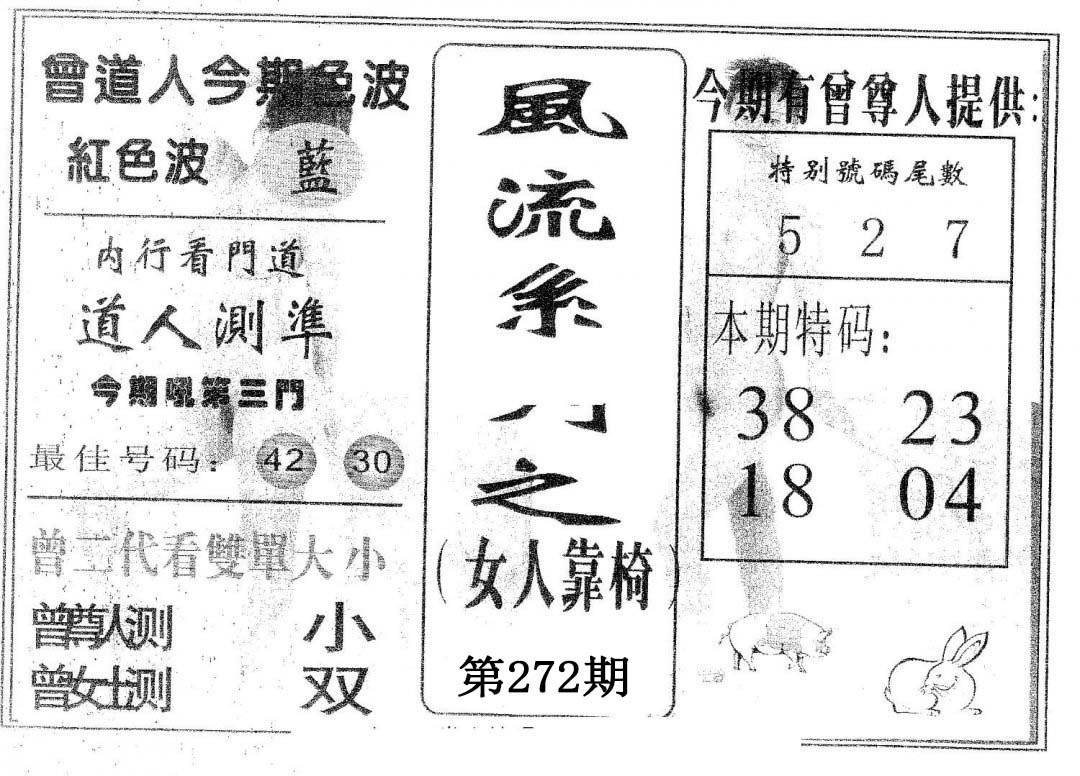 曾道人今期色波
紅色波 藍
内行看門道
道人測準
今期吼第三門
最佳号码： 42 30
曾二代看雙單大小
曾尊人测 小
曾女士测 双
風流系
之
（女人靠椅）
第272期
今期有曾尊人提供：
特别號碼尾數
5 2 7
本期特码：
38 23
18 04